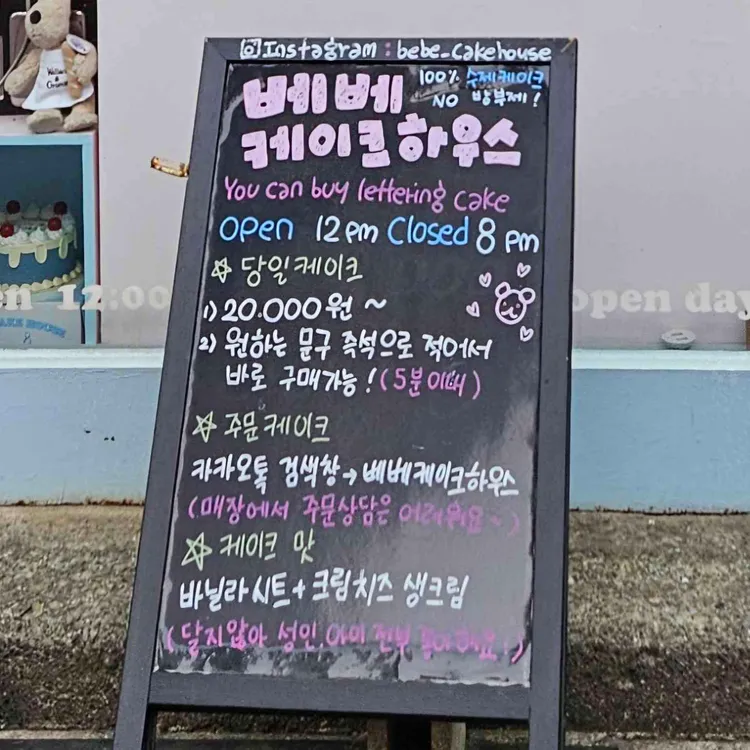 Instagram : bebe_cakehouse
베베
케이크하우스
100% 수제케이크
NO 방부제!
You can buy lettering cake
open 12pm Closed 8 pm
☆ 당일케이크
1) 20.000원 ~
2) 원하는 문구 즉석으로 적어서
바로 구매가능! (5분이내)
☆ 주문케이크
카카오톡 검색창→베베케이크하우스
(매장에서 주문상담은 어려워요~)
☆ 케이크 맛
바닐라시트+크림치즈 생크림
(달지않아 성인,아이 전부 좋아해요!)
12:00
open day